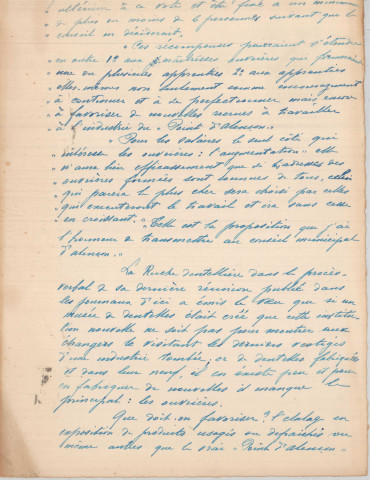 à ce vote et
de plus en moins de 6 personnes suivant que le
conseil en déciderait.
" Ces récompenses pourraient s'étendre
" en outre 1º aux maîtresses ouvrières qui formeraient
" une ou plusieurs apprenties 2º aux apprenties
" elles-mêmes non seulement comme encouragement
" à continuer et à se perfectionner mais encore
" à favoriser de nouvelles recrues à travailler
" à l'industrie du "Point d'Alençon".
" Pour les salaires le seul côté qui
" intéresse les ouvrières : l'augmentation elle
" n'aura lieu efficacement que si les adresses des
" ouvrières formées sont connues de tous, celui
" qui paiera le plus cher sera choisi par celles
" qui exécuteront le travail et ira sans cesse
" en croissant." Telle est la proposition que j'ai
" l'honneur de transmettre au conseil municipal
" d'Alençon."
La Ruche dentellière dans le procès-
verbal de sa dernière réunion publié dans
les journaux d'ici a émis le vœu que si un
musée de dentelles était créé que cette institu-
tion nouvelle ne soit pas pour montrer aux
étrangers le visitant les derniers vestiges
d'une industrie tombée, or de dentelles
et dans leur neuf, il en existe peu et pour
en fabriquer de nouvelles il manque le
principal : les ouvrières.
Que doit-on favoriser ? l'étalage en
exposition de produits usagés ou défraîchis ou
même autres que le vrai "Point d'Alençon"